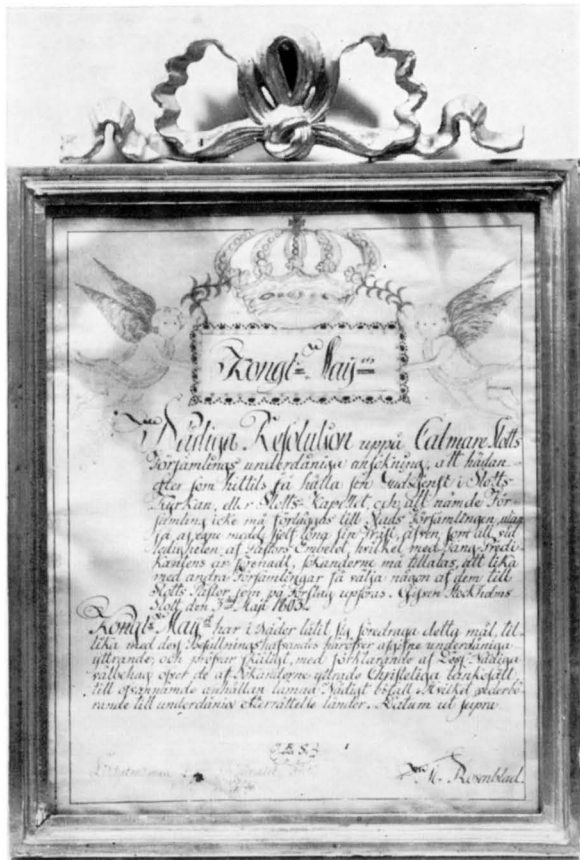 Kongl. Maÿts
Nådiga Resolution uppå Calmare Slotts
Församlings underdåniga ansökning, att hädan-
efter som hittils få hålla sin Gudstjenst i Slotts-
Kyrkan, eller Slotts-Kapellet, och att nämde För-
samling icke må förläggas till Stads Församlingen, utan
få af egne medel sielf löna sin Präst, äfven som att vid
ledigheten af Pastors Embetet, hvilket med Fång-Predi-
kantens är förenadt, Sökanderne må tillåtas, att lika
med andra Församlingar få välja någon af dem till
Slotts Pastor, som på Förslag upföras. Gifven Stockholms
Slott den 3 Maji
Kongl. Maÿt har i Nåder låtit sig föredraga detta mål, til-
lika med des Befallningshafvandes häröfver afgifne underdåniga
yttrande; och pröfvar skäligt, med förklarande af Dess Nådiga
välbehag öfver de af Sökanderne yttrade Christeliga tänkesätt,
till ofvannämde anhållan lämna Nådigt bifall. Hvilket vederbö-
rande till underdånig Efterrättelse länder. Datum ut supra.
Rosenblad.